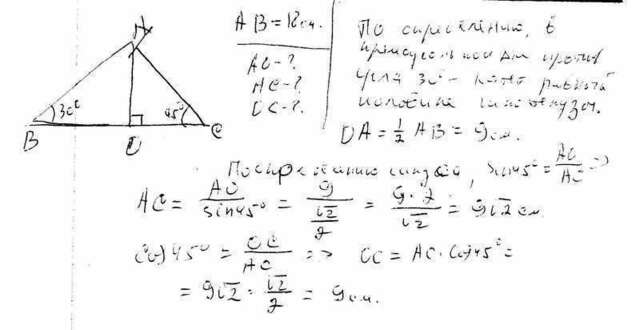 A
30°
45°
B
O
C
AB = 18 см.
AO - ?
AC - ?
OC - ?
По определению, в
прямоугольном Δ против
угла 30° - катет равный
половине гипотенузы.
OA = 1/2 AB = 9 см.
По определению синуса, sin45° = AO/AC =>
AC = AO/sin45° = 9/(√2/2) = 9·2/√2 = 9√2 см.
Cos45° = OC/AC => OC = AC·Cos45° =
= 9√2 · √2/2 = 9 см.